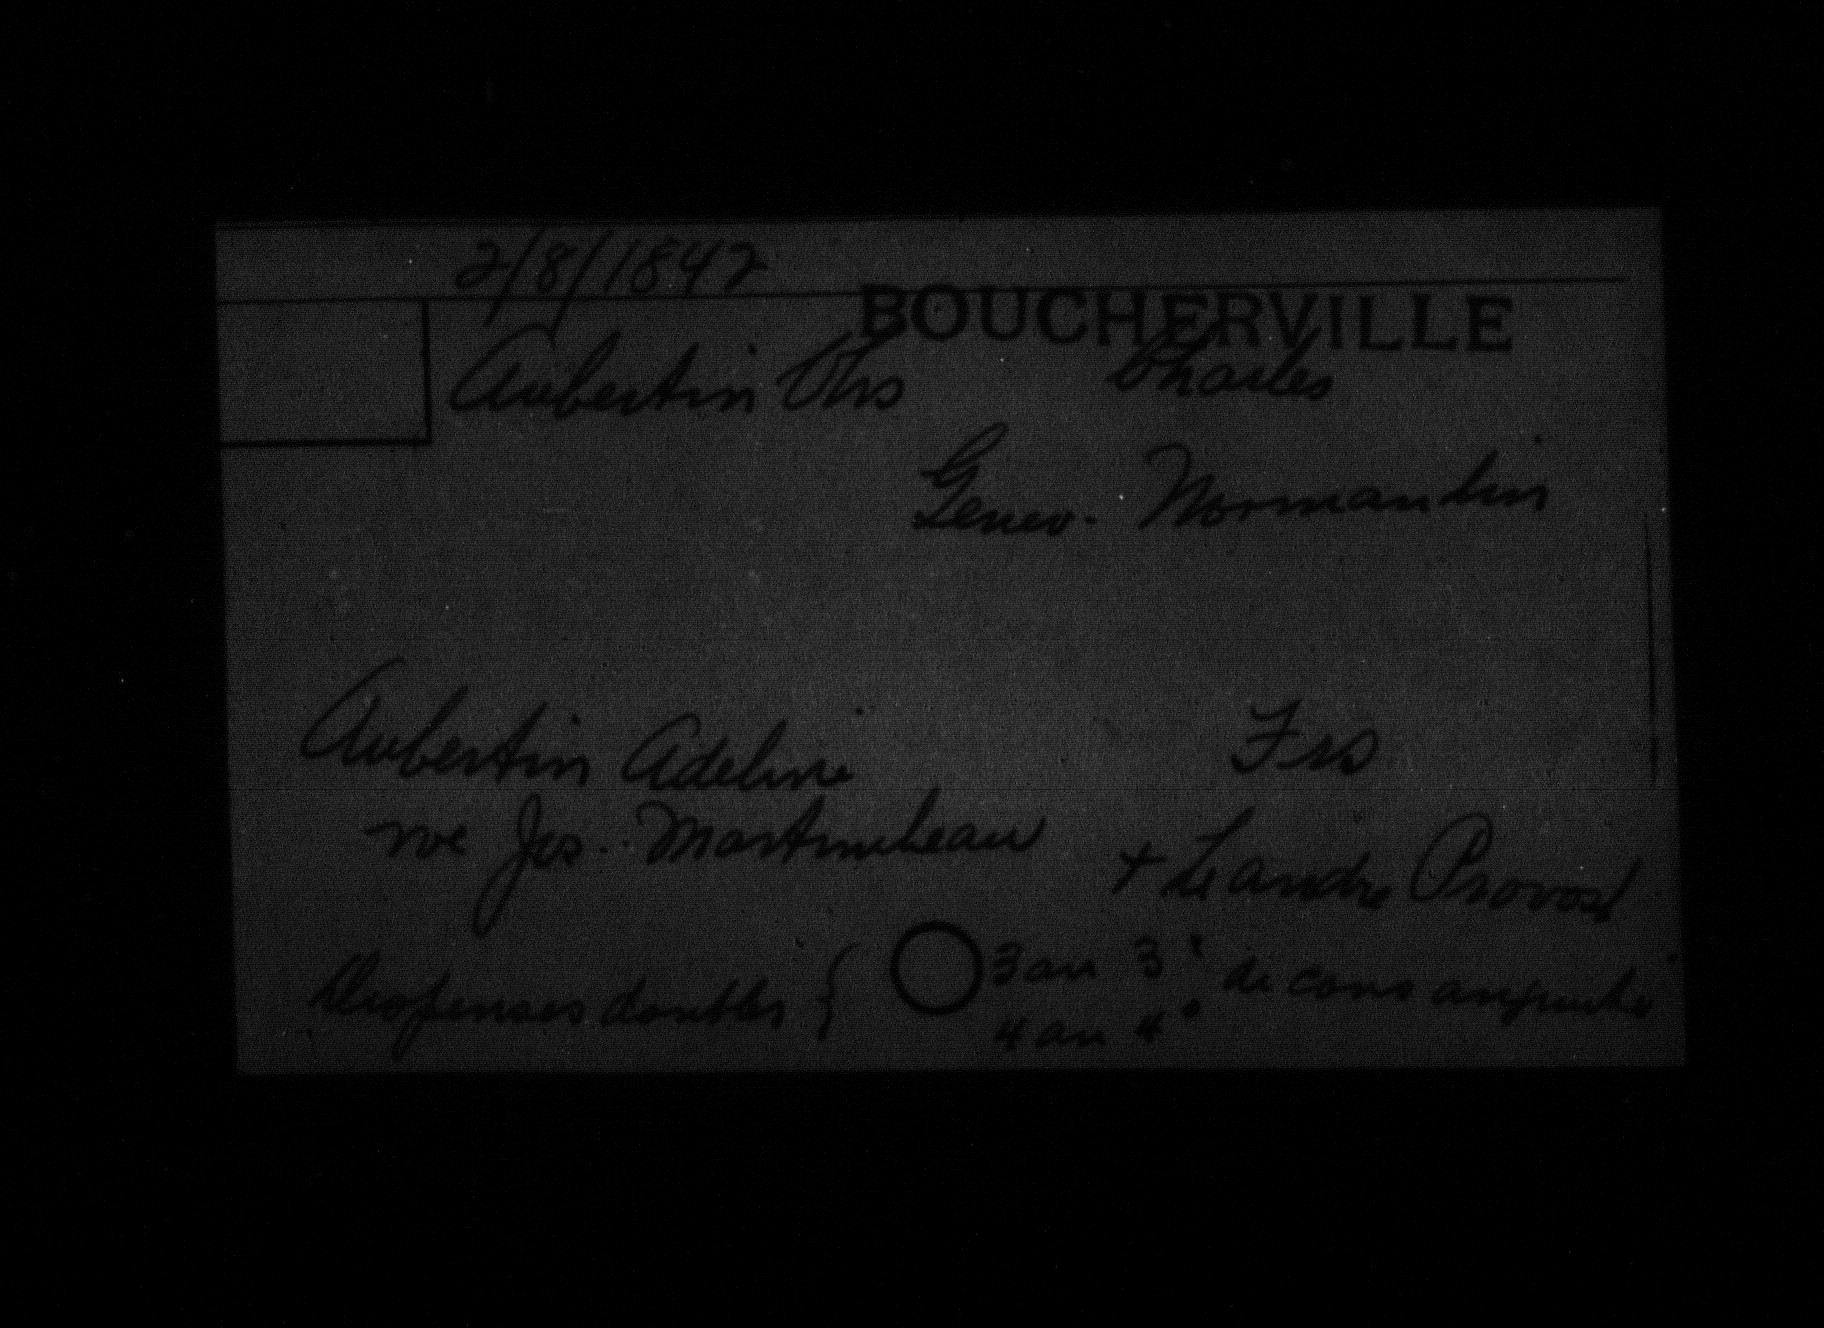 2/8/1842
BOUCHERVILLE
Aubertin Chs Charles
Genev. Normandin
Aubertin Adeline Frs
ve Jos. Martineau + Léandre Provost
Dispenses doubles { 3 au 3° de consanguinité
4 au 4°